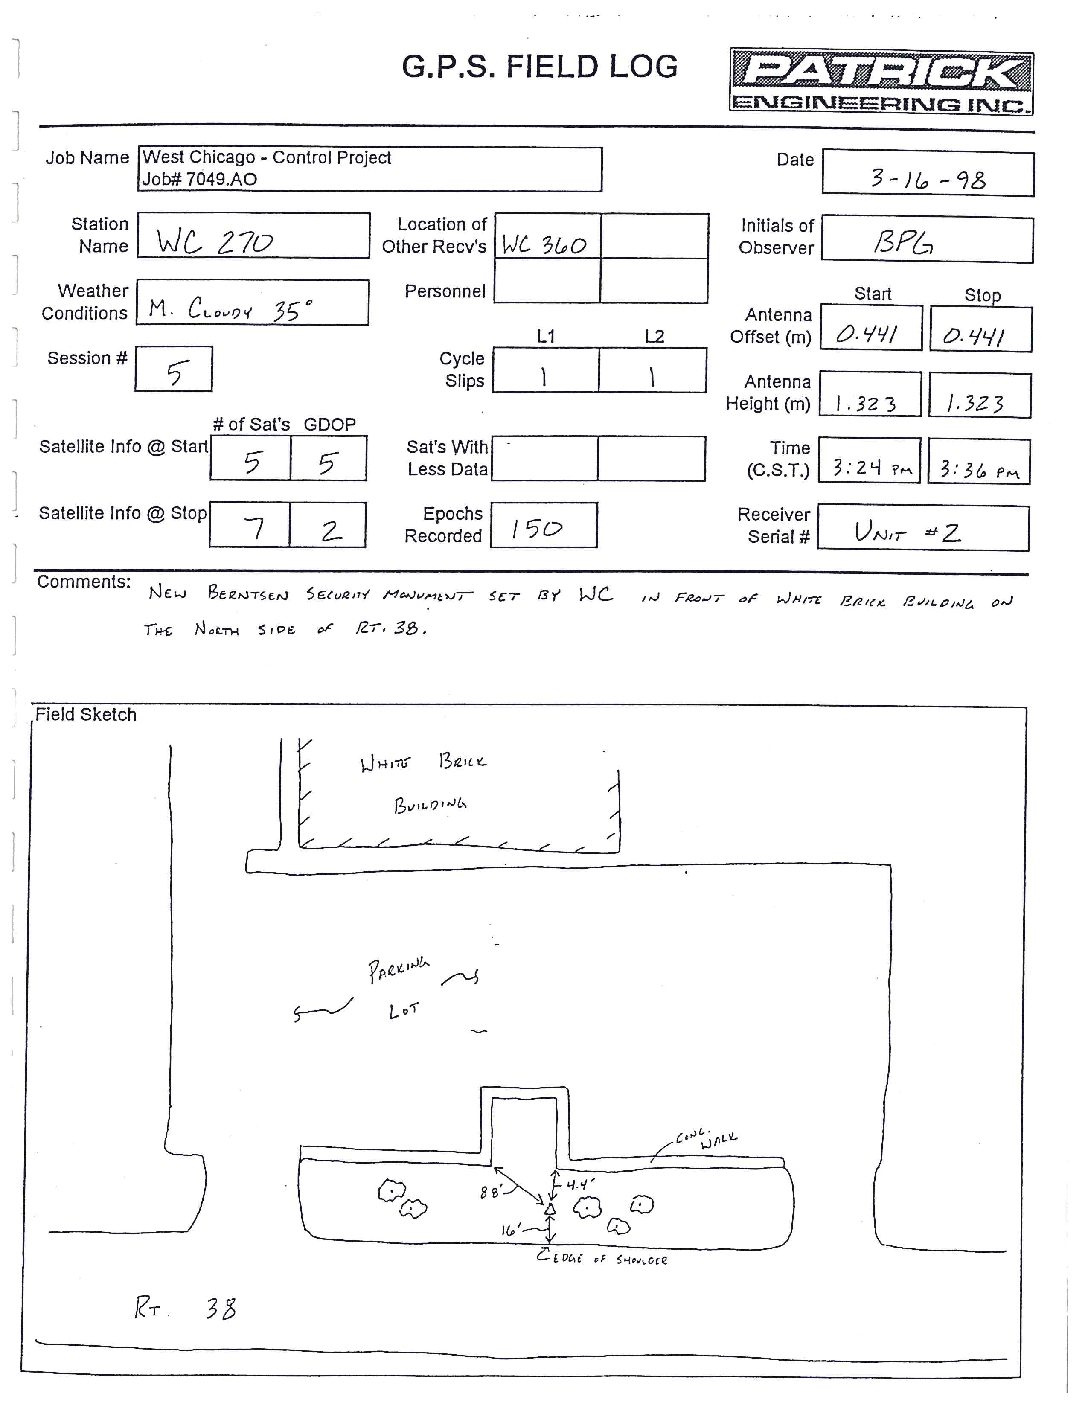 G.P.S. FIELD LOG
PATRICK
ENGINEERING INC.
Job Name West Chicago - Control Project
Job# 7049.AO
Date 3-16-98
Station Name WC 270
Location of Other Recv's WC 360
Initials of Observer BPG
Weather Conditions M. CLOUDY 35°
Personnel
Start Stop
Antenna Offset (m) 0.441 0.441
Session # 5
L1 L2
Cycle Slips 1 1
Antenna Height (m) 1.323 1.323
# of Sat's GDOP
Satellite Info @ Start 5 5
Sat's With Less Data -
Time (C.S.T.) 3:24 PM 3:36 PM
Satellite Info @ Stop 7 2
Epochs Recorded 150
Receiver Serial # UNIT #2
Comments: NEW BERNTSEN SECURITY MONUMENT SET BY WC IN FRONT OF WHITE BRICK BUILDING ON
THE NORTH SIDE OF RT. 38.
Field Sketch
WHITE BRICK
BUILDING
PARKING
LOT
CONC.
WALK
88' 44'
16'
EDGE OF SHOULDER
RT. 38